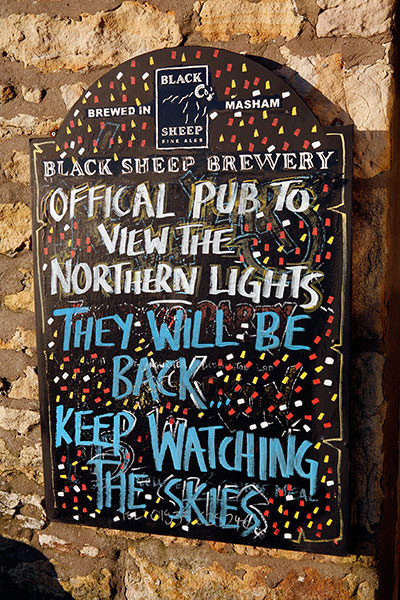 BLACK
SHEEP
FINE ALES
BREWED IN MASHAM
BLACK SHEEP BREWERY
OFFICAL PUB TO
VIEW THE
NORTHERN LIGHTS
THEY WILL BE
BACK...
KEEP WATCHING
THE SKIES